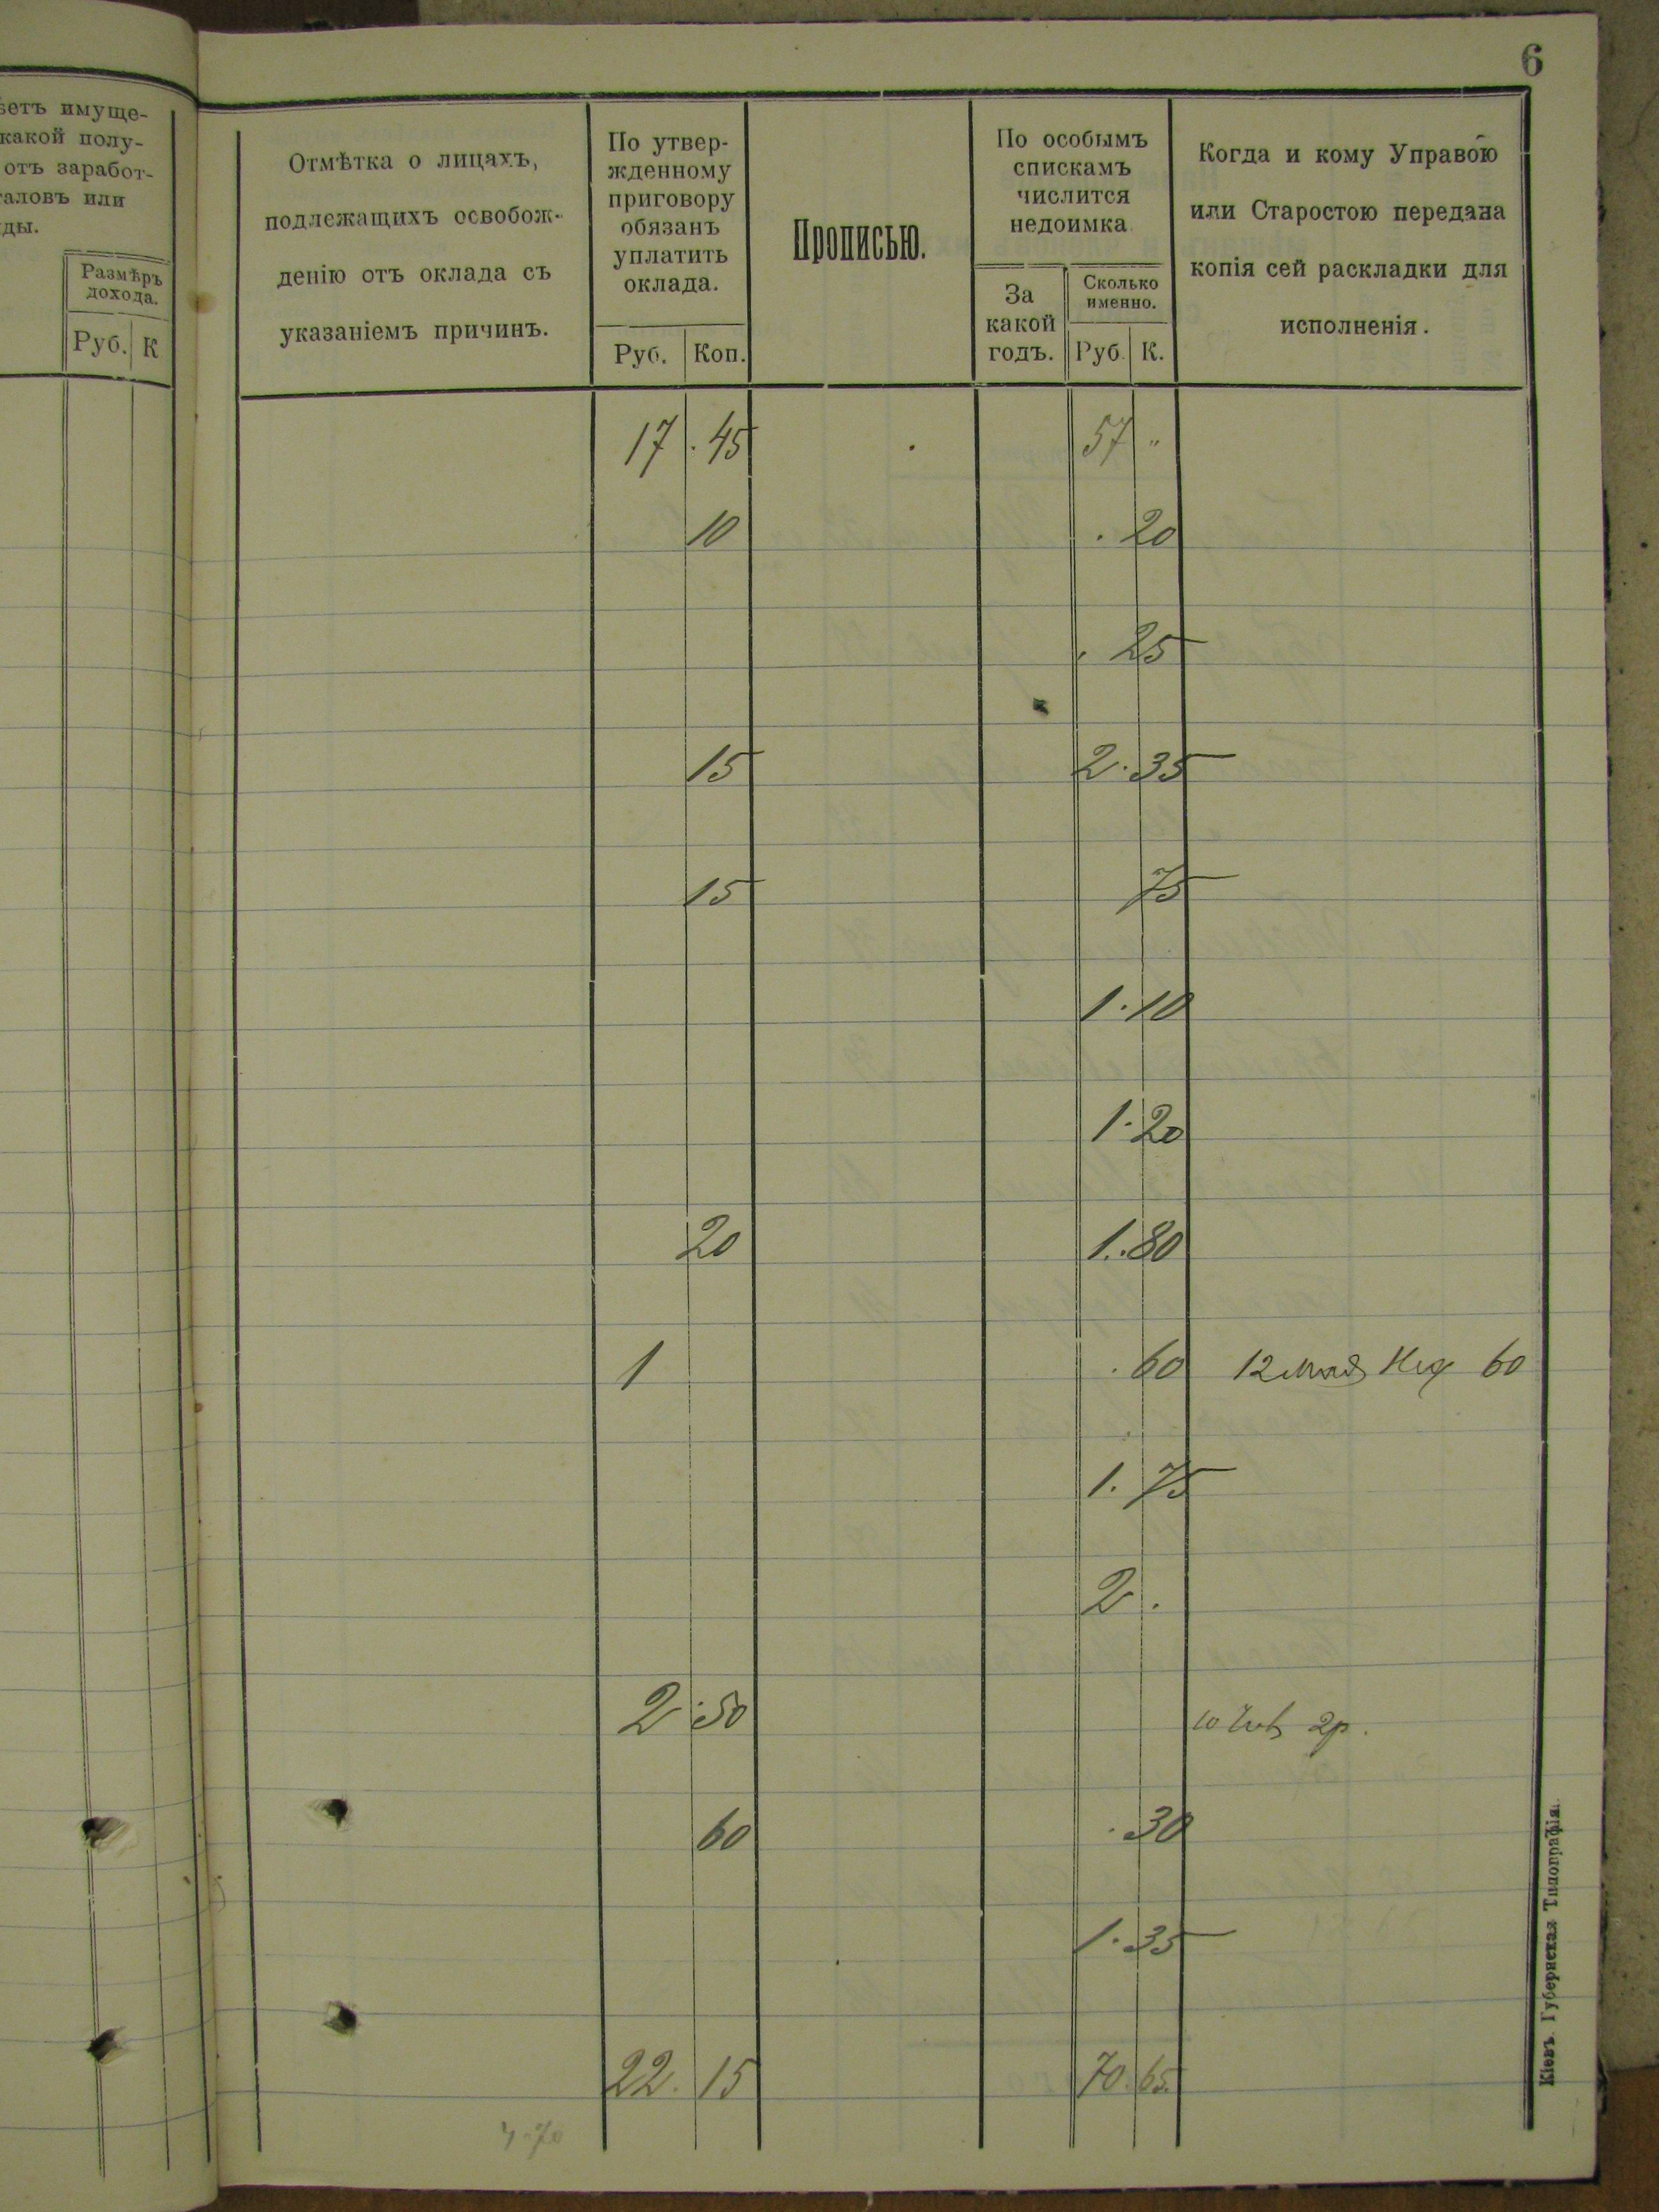 6
ѣетъ имуще-
какой полу-
отъ заработ-
таловъ или
ды.
Размѣръ
дохода.
Руб. К
Отмѣтка о лицахъ,
подлежащихъ освобож-
денію отъ оклада съ
указаніемъ причинъ.
По утвер-
жденному
приговору
обязанъ
уплатить
оклада.
Руб. Коп.
Прописью.
По особымъ
спискамъ
числится
недоимка
За
какой
годъ.
Сколько
именно.
Руб. К.
Когда и кому Управою
или Старостою передана
копія сей раскладки для
исполненія.
17 . 45 57 "
10 . 20
. 25
15 2 . 35
15 75
1 . 10
1 . 20
20 1 . . 80
1 . 60 12 60
1 . 75
2 .
2 . 50 10 2р.
60 . 30
1 . 35
22 . 15 70 . 65.
4.70
Кіевъ. Губернская Типографія.